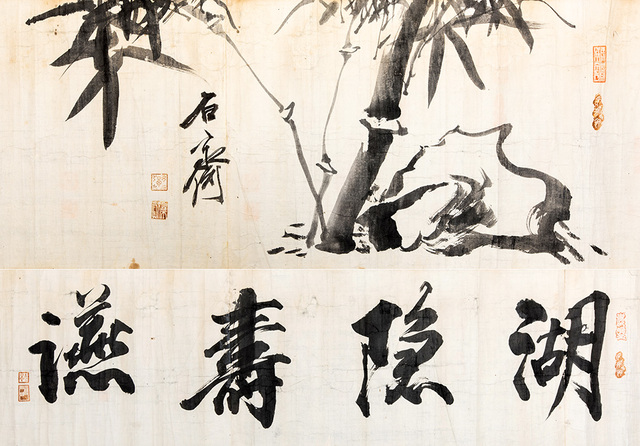 石齋
湖隐壽讌